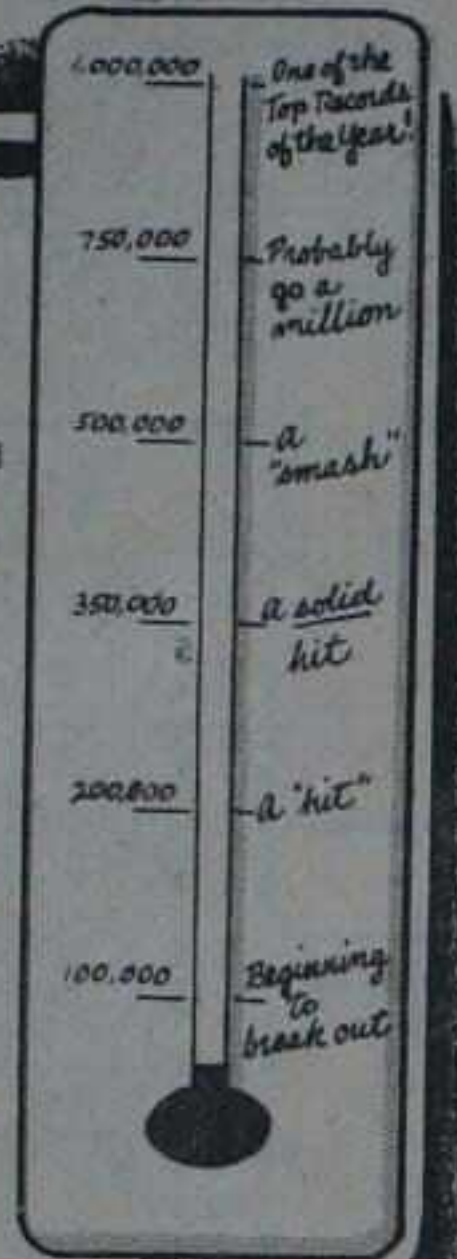 1,000,000
One of the
Top Records
of the Year!
750,000
Probably
go a
million
500,000
a
"smash"
350,000
a solid
hit
200,000
a "hit"
100,000
Beginning
to
break out